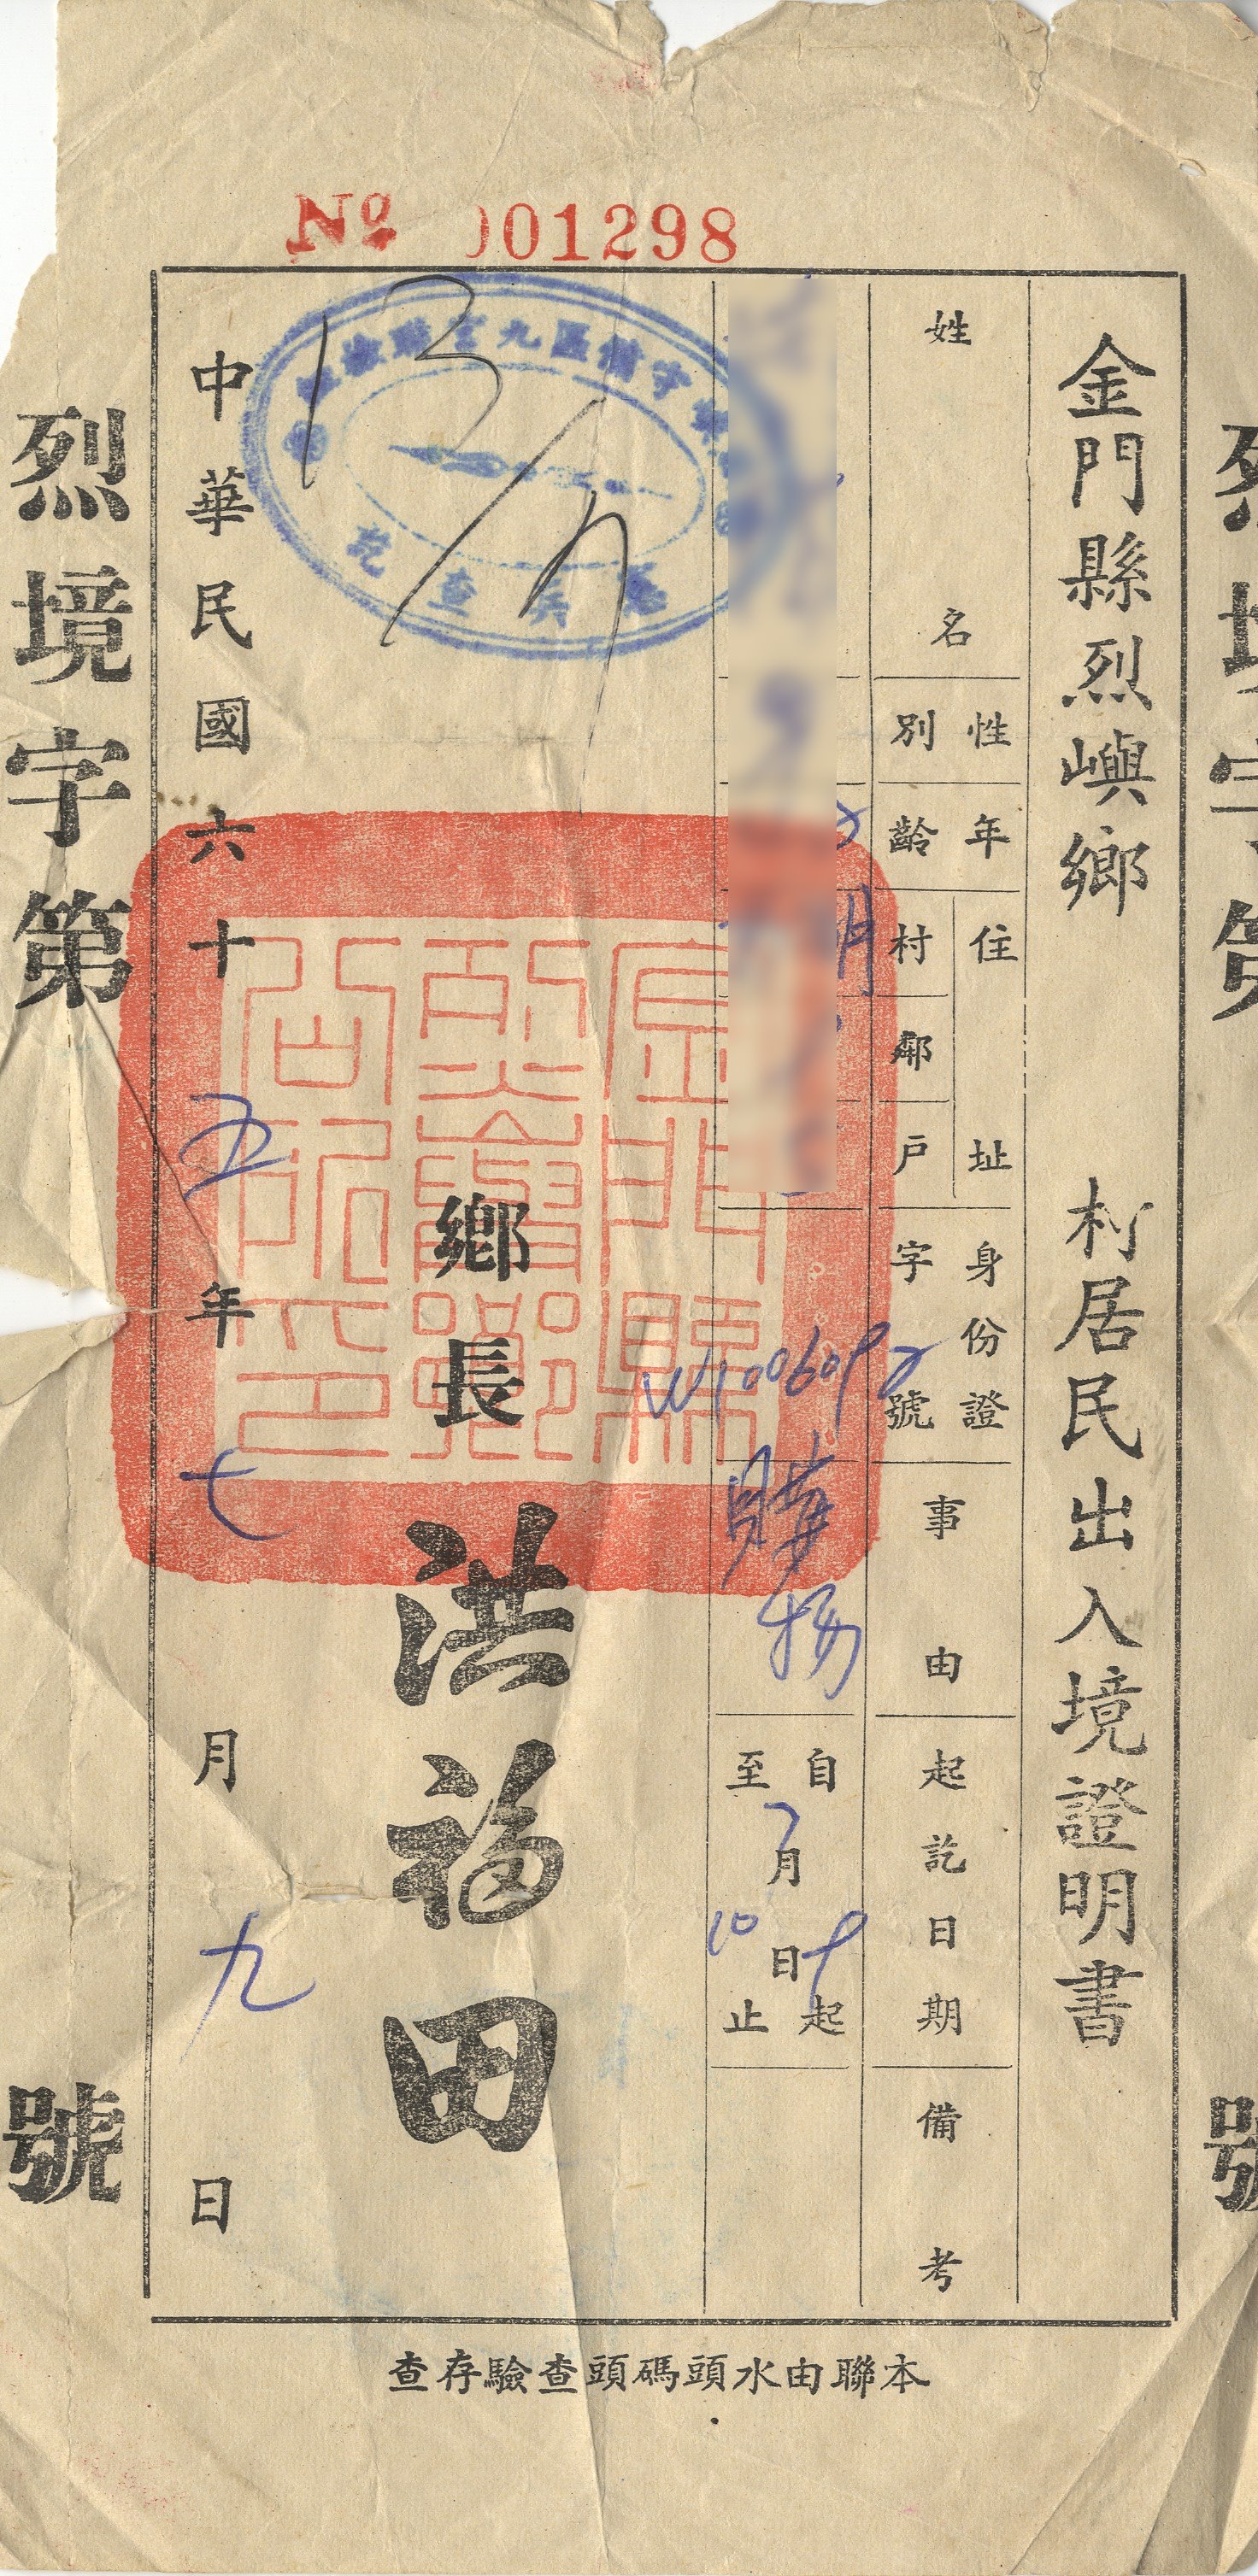 № 001298
金門縣烈嶼鄉 村居民出入境證明書
姓名
性別
年齡
住址
村
鄰
戶
身份證
字號
事由
起訖日期
備考
明
W1006092
購物
自7月9日起
至10日止
查訖
鄉長 洪福田
中華民國六十五年七月九日
烈境字第 號
本聯由水頭碼頭查驗存查